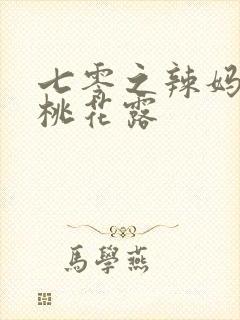 七零之辣妈
桃花露
馬學燕